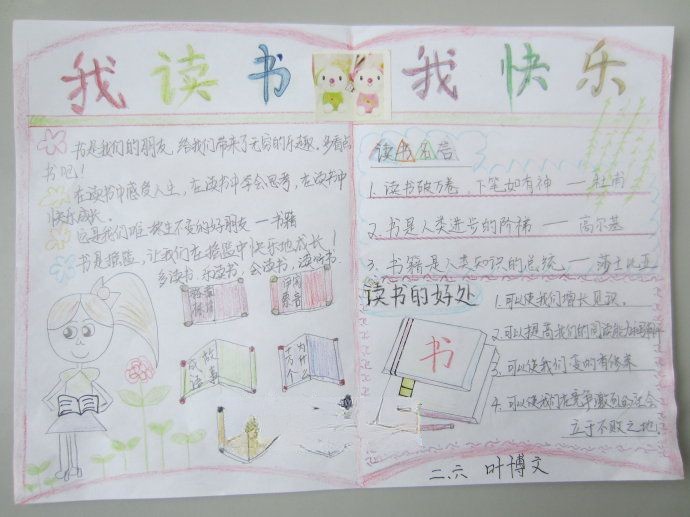 我读书 我快乐
书是我们的朋友,给我们带来了无穷的乐趣,多看点
书吧!
在读书中感受人生,在读书中学会思考,在读书中
快乐成长。
这是我们唯一终生不变的好朋友——书籍
书是摇篮,让我们在摇篮中快乐地成长!
多读书,乐读书,会读书,读好书。
成语
故事
十万个
为什么
读书名言
1.读书破万卷,下笔如有神——杜甫
2.书是人类进步的阶梯——高尔基
3.书籍是人类知识的总统——莎士比亚
读书的好处
书
1.可以使我们增长见识。
2.可以提高我们的阅读能力
3.可以使我们变的有修养
4.可以使我们在竞争激烈的社会
立于不败之地
二.六 叶博文